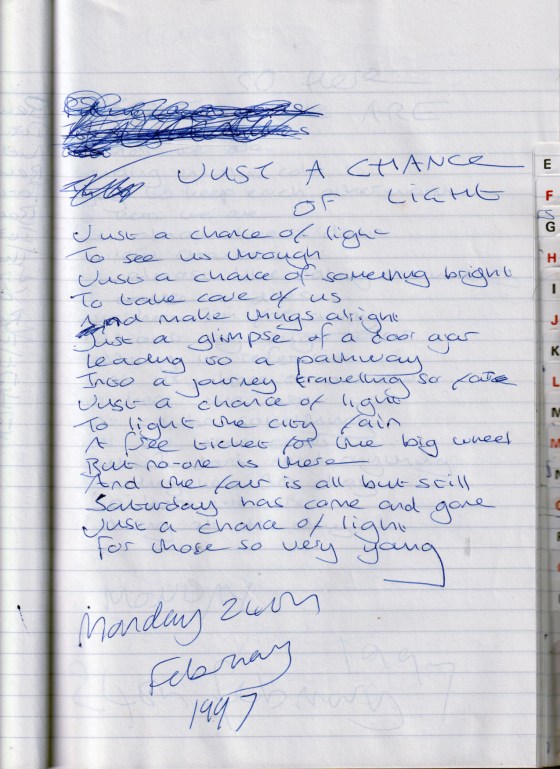 JUST A CHANCE
OF LIGHT
Just a chance of light
To see us through
Just a chance of something bright
To take care of us
And make things alright
Just a glimpse of a door ajar
Leading to a pathway
Into a journey travelling so
Just a chance of light
To light the city fair
A free ticket for the big wheel
But no-one is there
And the fair is all but still
Saturday has come and gone
Just a chance of light
For those so very young
Monday 24th
February
1997
E
F
G
H
I
J
K
L
M